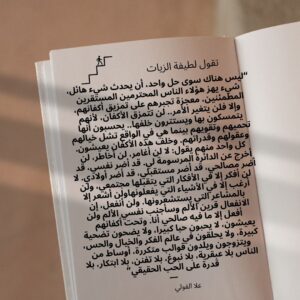 تقول لطيفة الزيات
"ليس هناك سوى حل واحد، أن يحدث شيء هائل،
شيء يهز هؤلاء الناس المحترمين المستقرين
المطمئنين، معجزة تجبرهم على تمزيق أكفانهم،
وإلا فلن يتغير الأمر.. لن تتمزق الأكفان، لأنهم
يتمسكون بها ويستترون خلفها.. يحسبون أنها
تحميهم وتقويهم بينما هي في الواقع تشل خيالهم
وعقولهم وقدراتهم. وخلف هذه الأكفان يعيشون
كل واحد منهم يقول: لا لن أغامر، لن أخاطر، لن
أخرج عن الدائرة المرسومة لي. قد أضر نفسي، قد
أضر مصالحي، قد أضر مستقبلي، قد أضر أولادي، لا
لن أفكر إلا في الأفكار التي يتقبلها مجتمعي، ولن
أرغب إلا في الأشياء التي يفعلونهاولن أشعر إلا
بالمشاعر التي يستشعرونها. ولن أنفعل، لأن
الانفعال قرين الألم وسأجنب نفسي الألم ولن
أفعل إلا ما فيه صالحي أنا. وتحت أكفانهم
يعيشون، لا يحبون حبا كبيرا، ولا يضحون تضحية
كبيرة، ولا يحلقون في عالم الفكر والخيال والحس،
ويتزوجون ويلدون قوالب متكررة، أوساط من
الناس بلا عبقرية، بلا نبوغ، بلا تفنن، بلا ابتكار، بلا
قدرة على الحب الحقيقي"
علا القولي